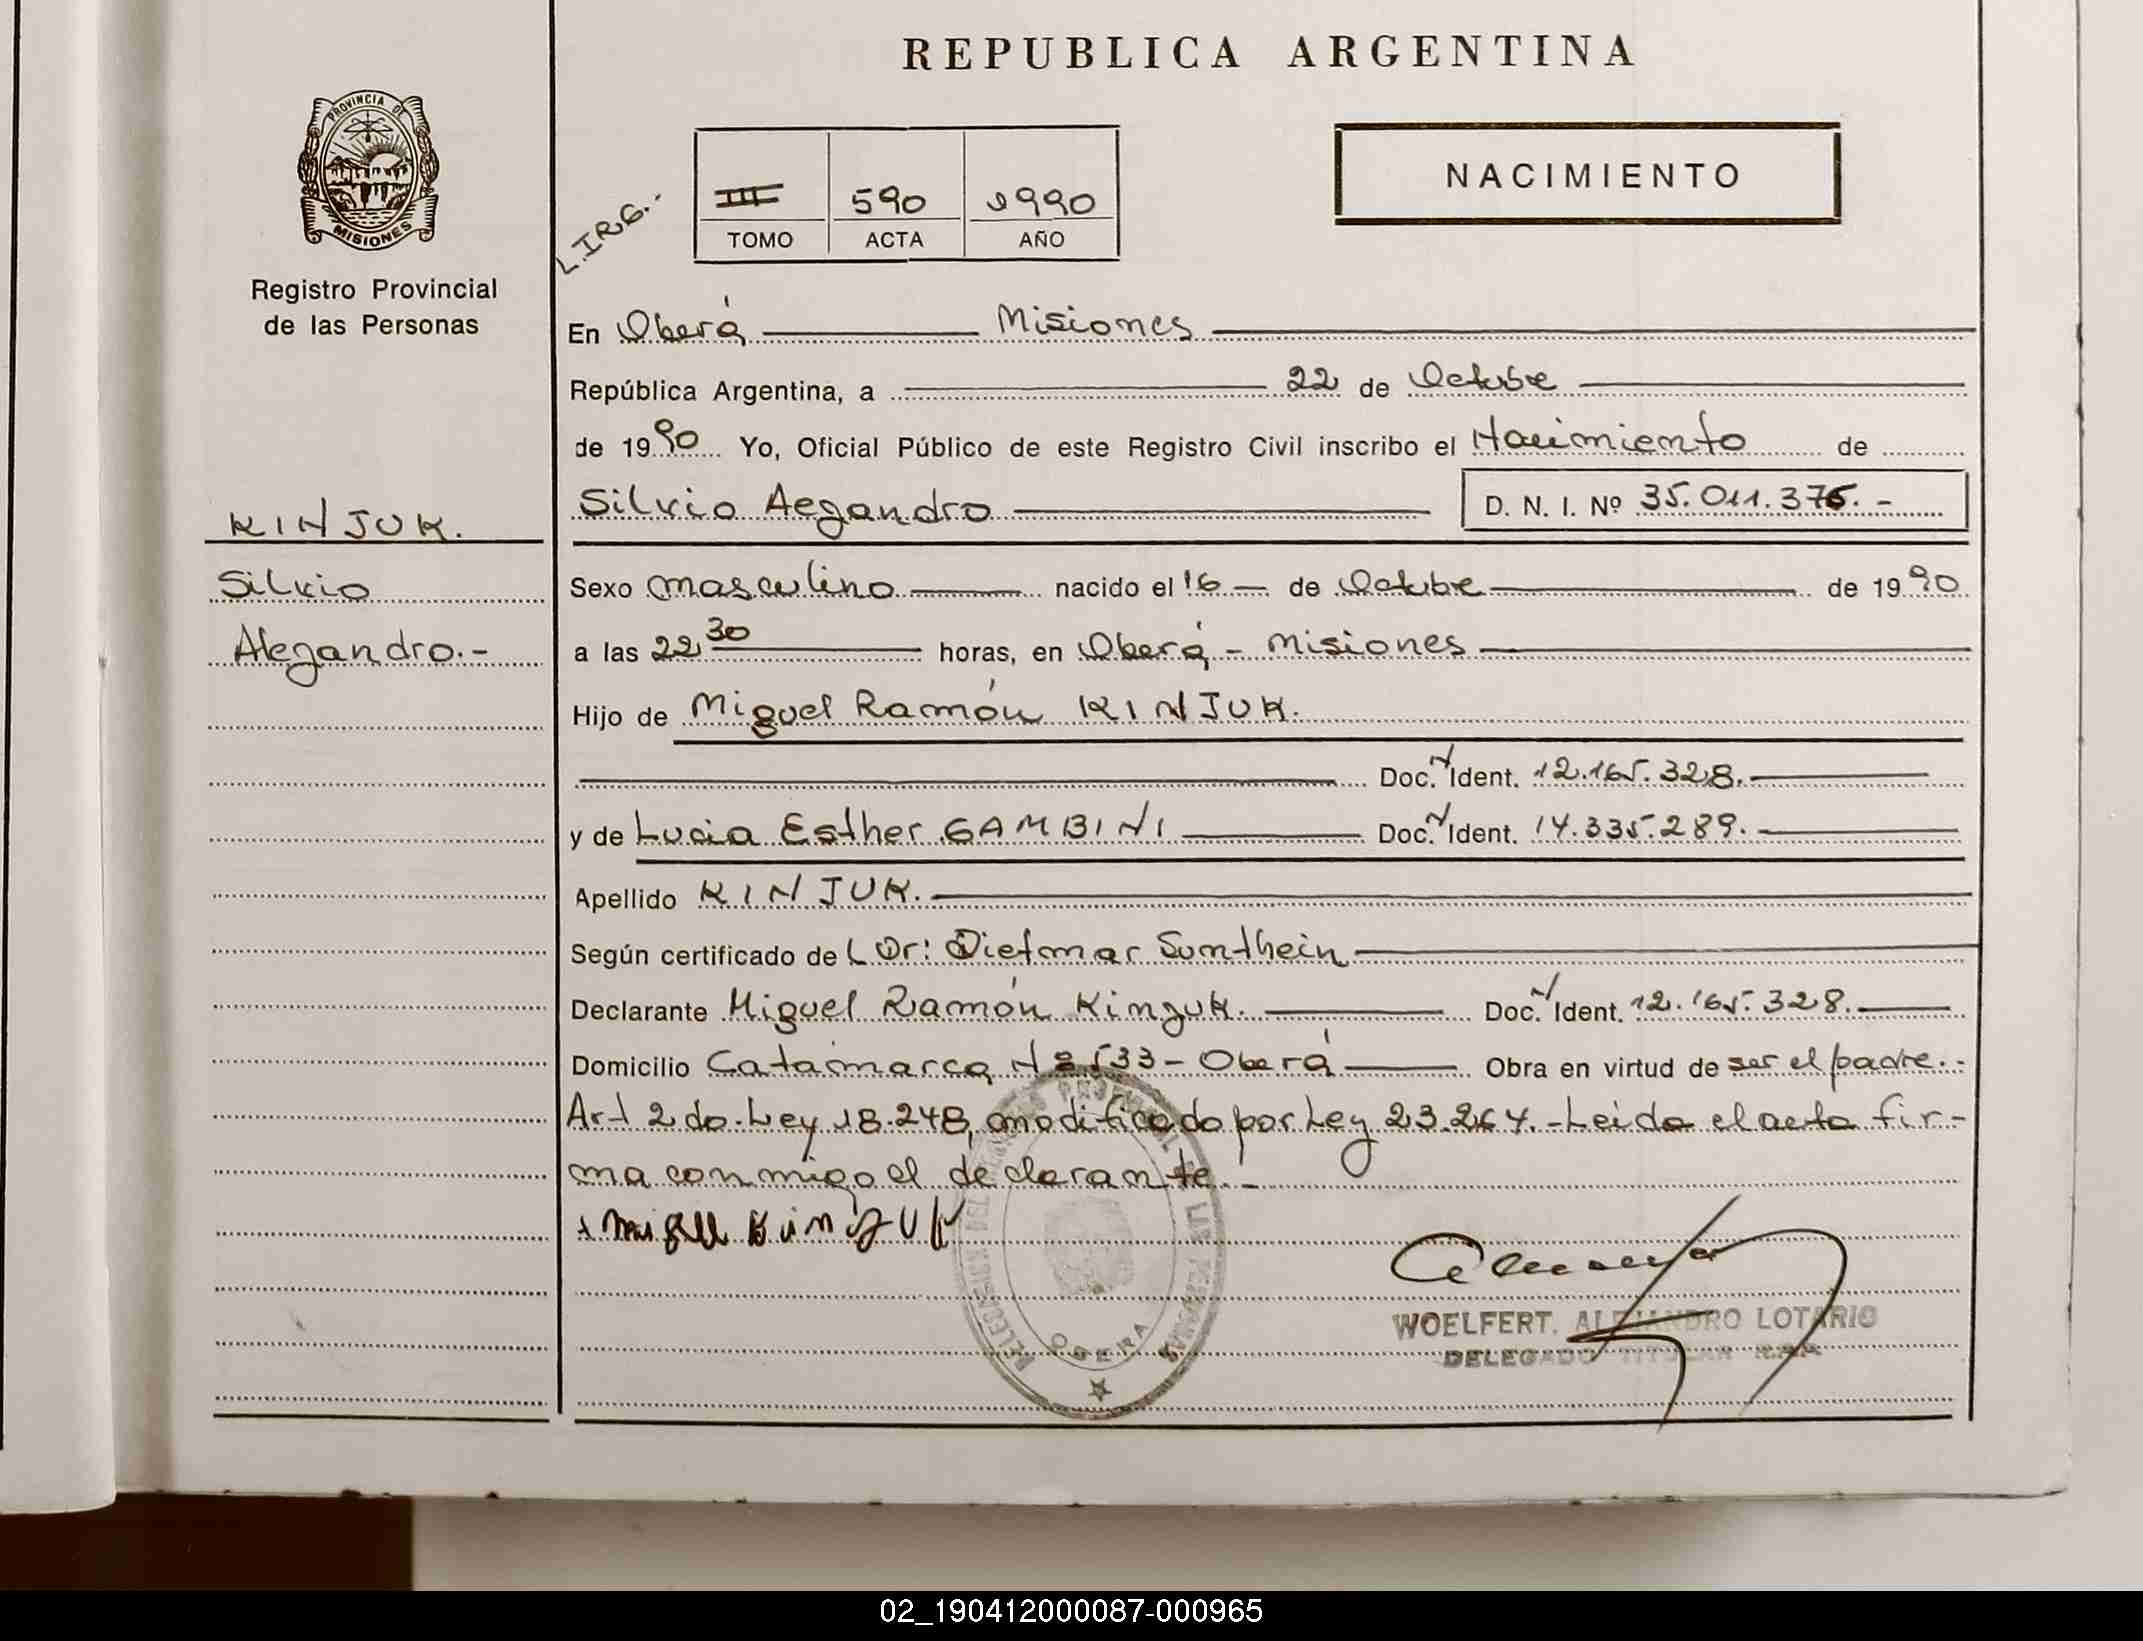 REPUBLICA ARGENTINA
PROVINCIA DE
MISIONES
Registro Provincial
de las Personas
L.IRG.-
III 590 1990
TOMO ACTA AÑO
NACIMIENTO
KINJUK.
Silvio
Alegandro.-
En Oberá Misiones
República Argentina, a 22 de Octubre
de 1990 Yo, Oficial Público de este Registro Civil inscribo el Nacimiento de
Silvio Aegandro D. N. I. Nº 35.011.376.-
Sexo masculino nacido el 16 de Octubre de 1990
a las 22 30 horas, en Oberá - Misiones
Hijo de Miguel Ramón KINJUK.
Doc. N Ident. 12.165.328.
y de Lucia Esther GAMBINI Doc. N Ident. 14.335.289.
Apellido KINJUK.
Según certificado de L Dr: Dietmar Sumthein
Declarante Miguel Ramón Kinjuk. Doc. N Ident. 12.165.328.
Domicilio Catamarca Nº 533 - Oberá Obra en virtud de ser el padre.-
Art 2 do. Ley 18.248, modificado por Ley 23.264.- Leida el acta fir-
ma conmigo el declarante.-
OBERA
WOELFERT. ALEJANDRO LOTARIO
DELEGADO TITULAR
02_190412000087-000965